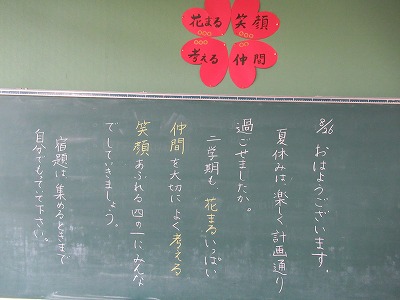 花まる
笑顔
考える
仲間
8/26 おはようございます。
夏休みは、楽しく計画通り
過ごせましたか。
二学期も、花まるいっぱい
仲間を大切によく考える
笑顔あふれる四の一にみんな
でしていきましょう。
宿題は集めるときまで
自分でもっていて下さい。